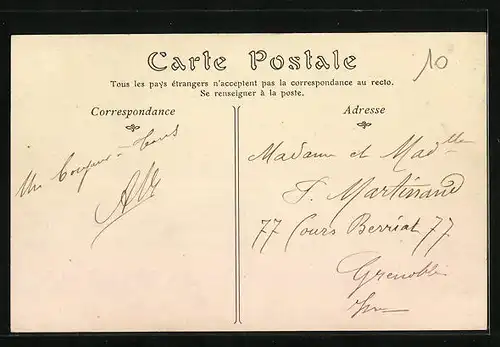 Carte Postale
10
Tous les pays étrangers n'acceptent pas la correspondance au recto.
Se renseigner à la poste.
Correspondance
Un Bonjour à tous
Adresse
Madame et Madelle
F. Martinand
77 Cours Berriat 77
Grenoble